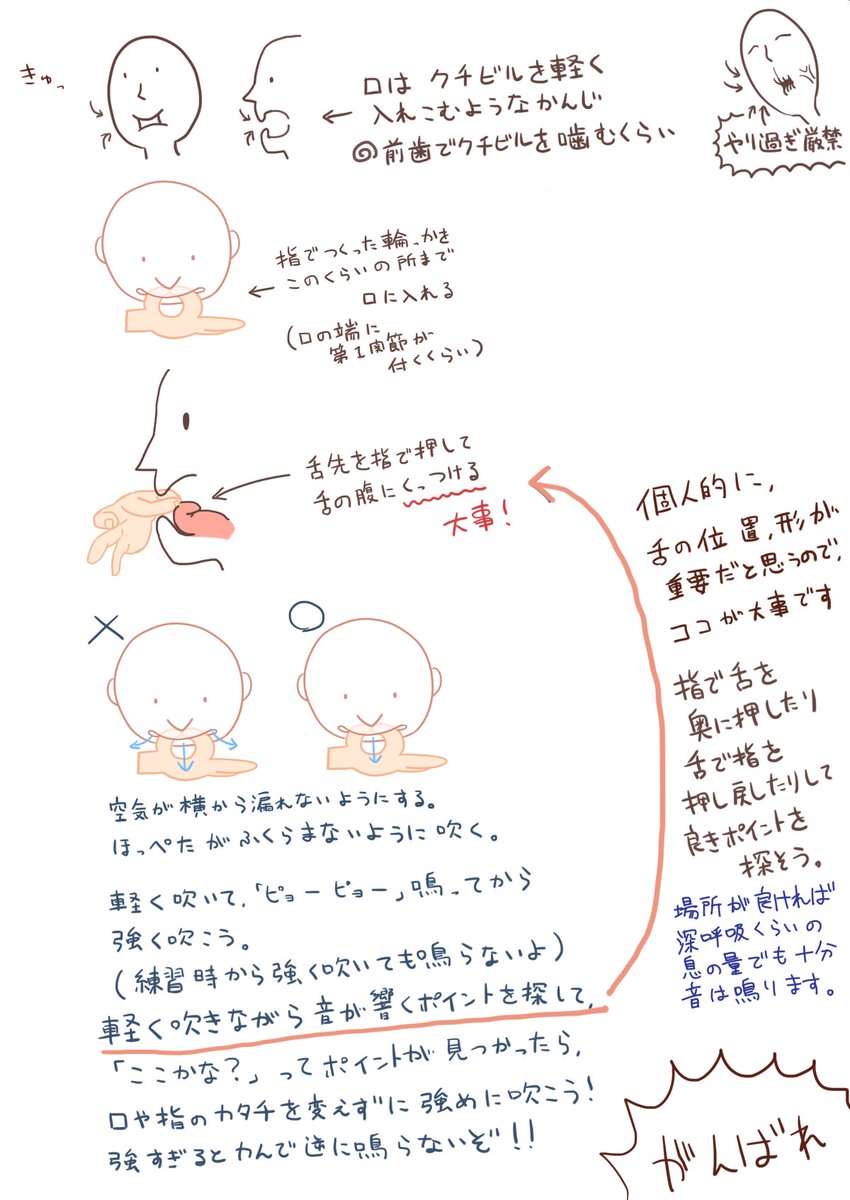 きゅっ
口は クチビルを軽く
入れこむようなかんじ
◎前歯でクチビルを噛むくらい
やり過ぎ厳禁
指でつくった輪っかを
このくらいの所まで
口に入れる
(口の端に
第1関節が
付くくらい)
舌先を指で押して
舌の腹にくっつける
大事!
個人的に、
舌の位置、形が
重要だと思うので、
ココが大事です
指で舌を
奥に押したり
舌で指を
押し戻したりして
良きポイントを
探そう。
場所が良ければ
深呼吸くらいの
息の量でも十分
音は鳴ります。
空気が横から漏れないようにする。
ほっぺたがふくらまないように吹く。
軽く吹いて、「ピョーピョー」鳴ってから
強く吹こう。
(練習時から強く吹いても鳴らないよ)
軽く吹きながら音が響くポイントを探して、
「ここかな?」ってポイントが見つかったら、
口や指のカタチを変えずに強めに吹こう!
強すぎると力んで逆に鳴らないぞ!!
がんばれ